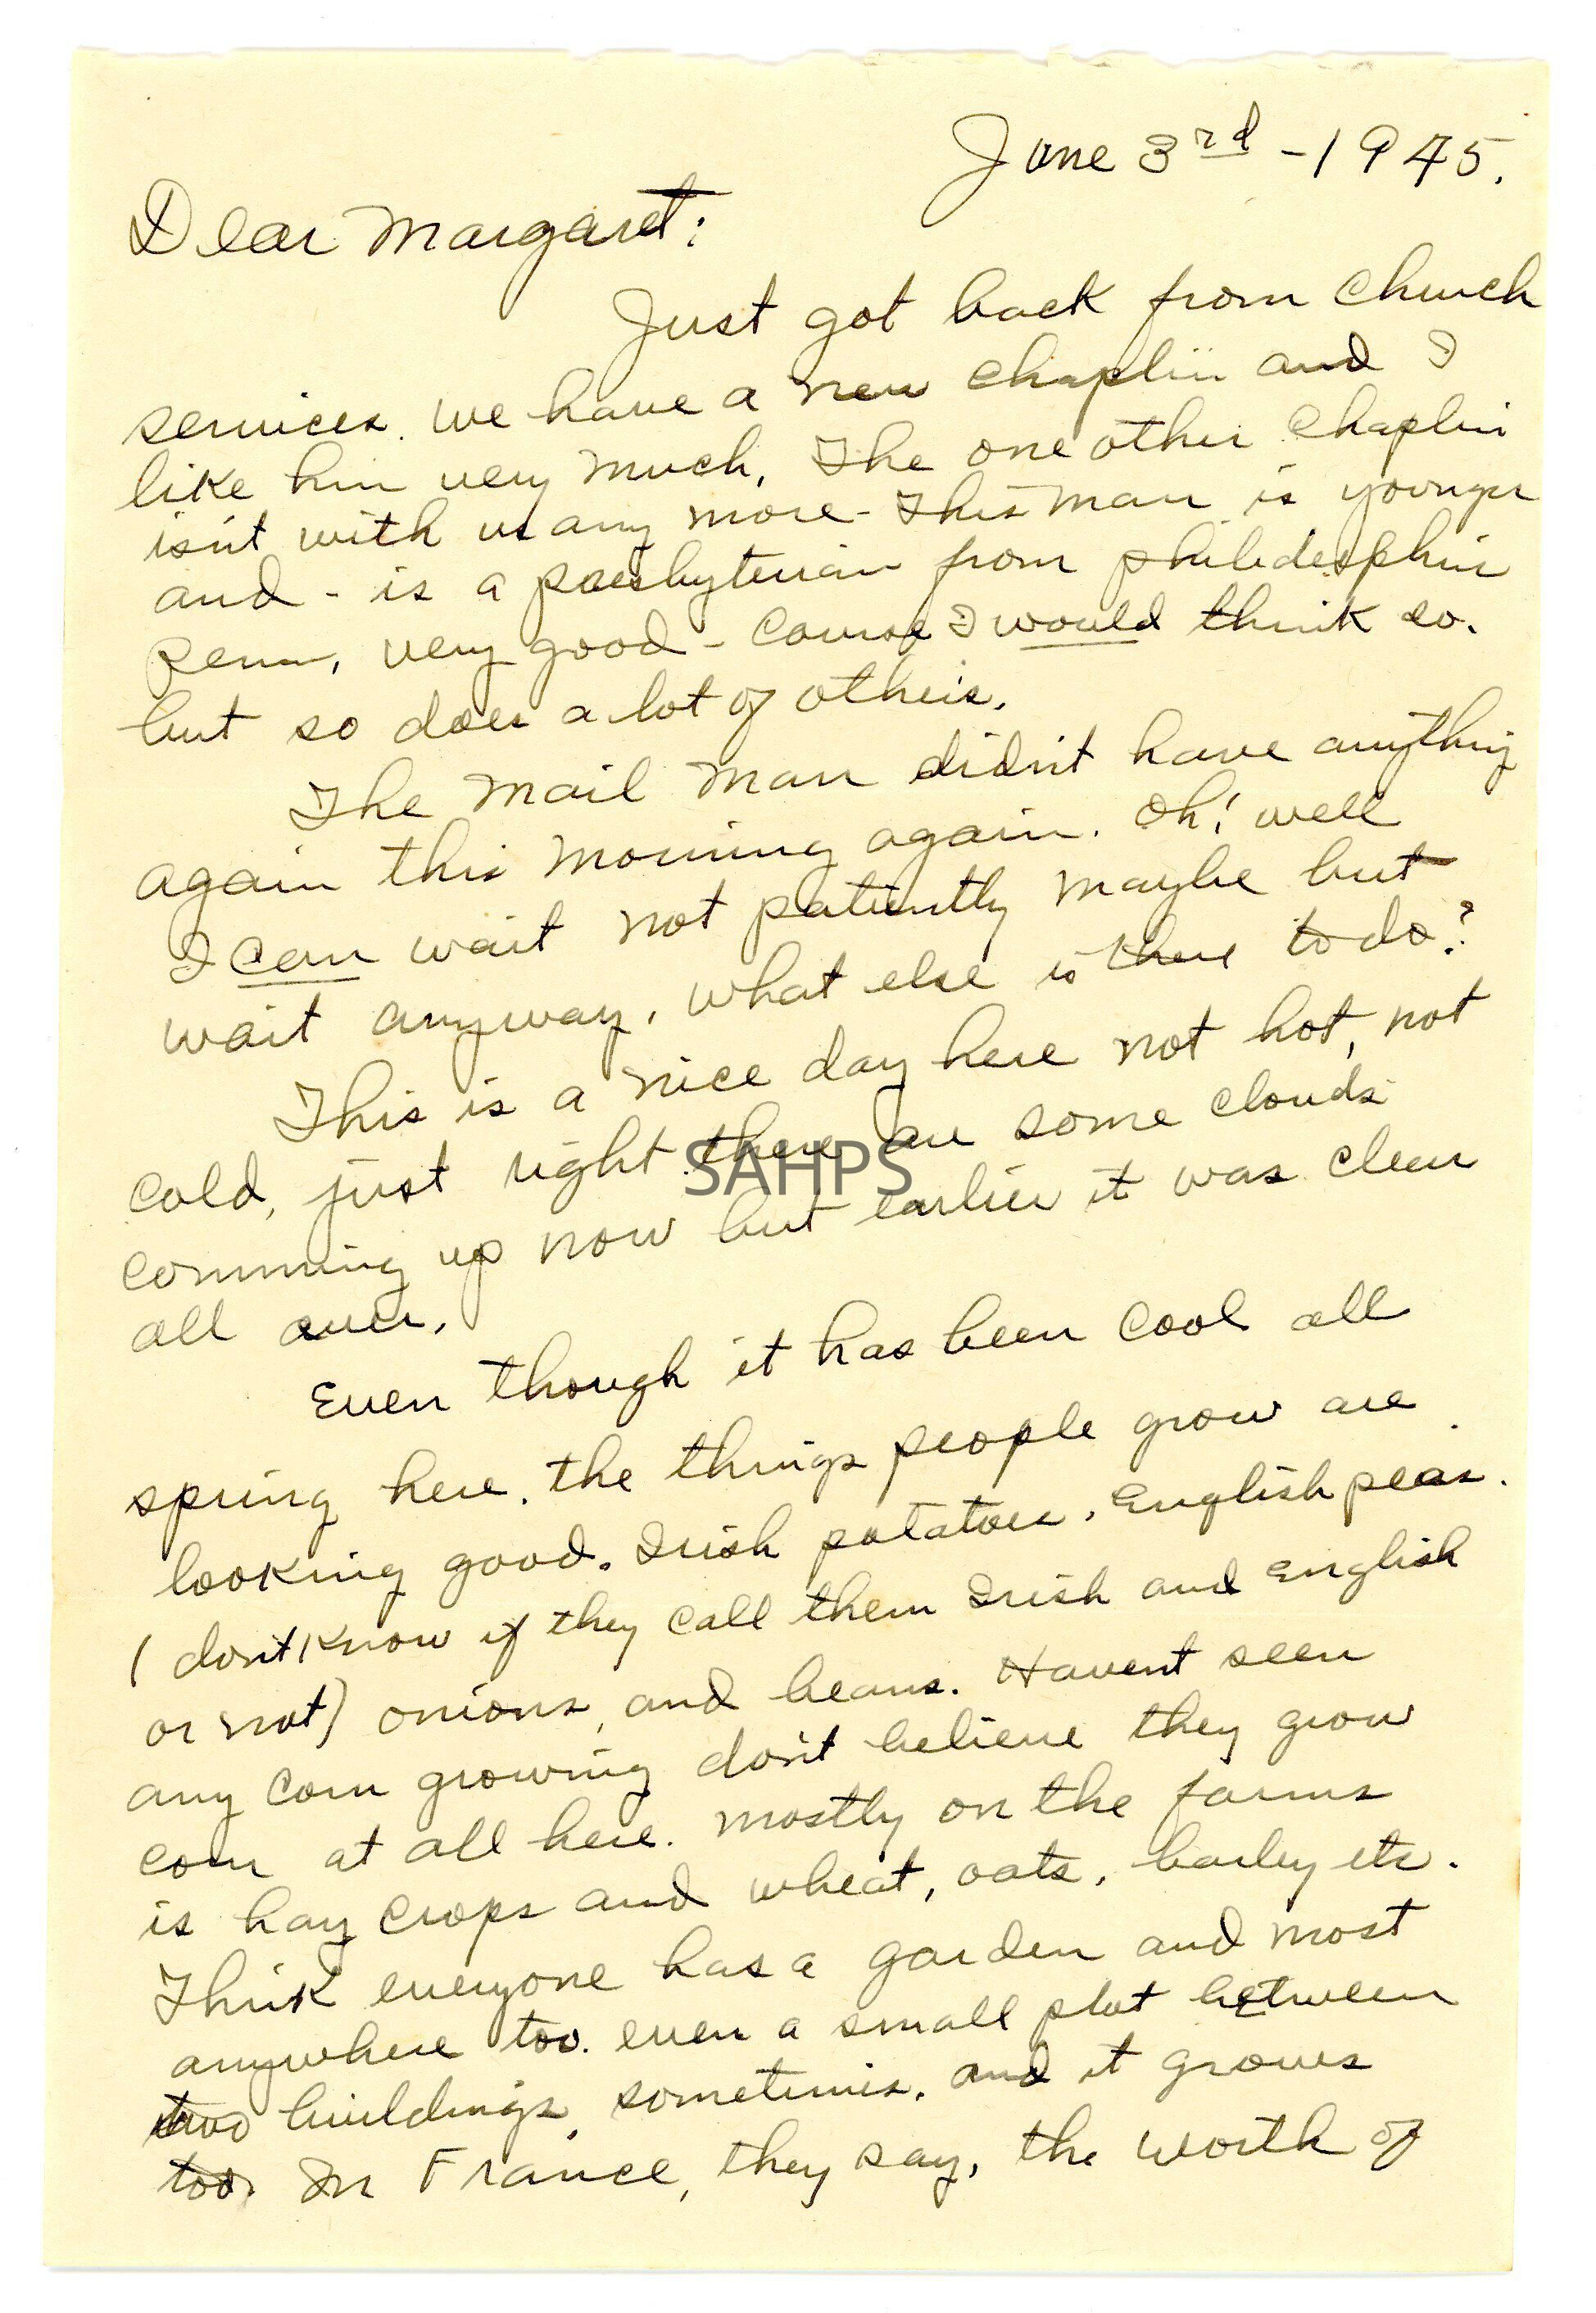 June 3rd - 1945.
Dear Margaret:
Just got back from church
services. we have a new chaplin and I
like him very much. The one other chaplin
isn't with us any more - This man is younger
and - is a presbyterian from philidelphia
penn, very good - course I would think so.
but so does a lot of others.
The mail man didn't have anything
again this morning again. Oh! well
I can wait not patiently maybe but
wait anyway, what else is there to do?
This is a nice day here not hot, not
cold, just right there are some clouds
comming up now but earlier it was clear
SAHPS
all over.
Even though it has been cool all
spring here. the things people grow are
looking good. Irish potatoes, English peas.
( don't know if they call them Irish and English
or not) onions, and beans. Havent seen
any corn growing don't believe they grow
corn at all here. mostly on the farms
is hay crops and wheat, oats, barley etc.
Think everyone has a garden and most
anywhere too. even a small plot between
two buildings, sometimes. and it grows
too. In France, they say, the worth of